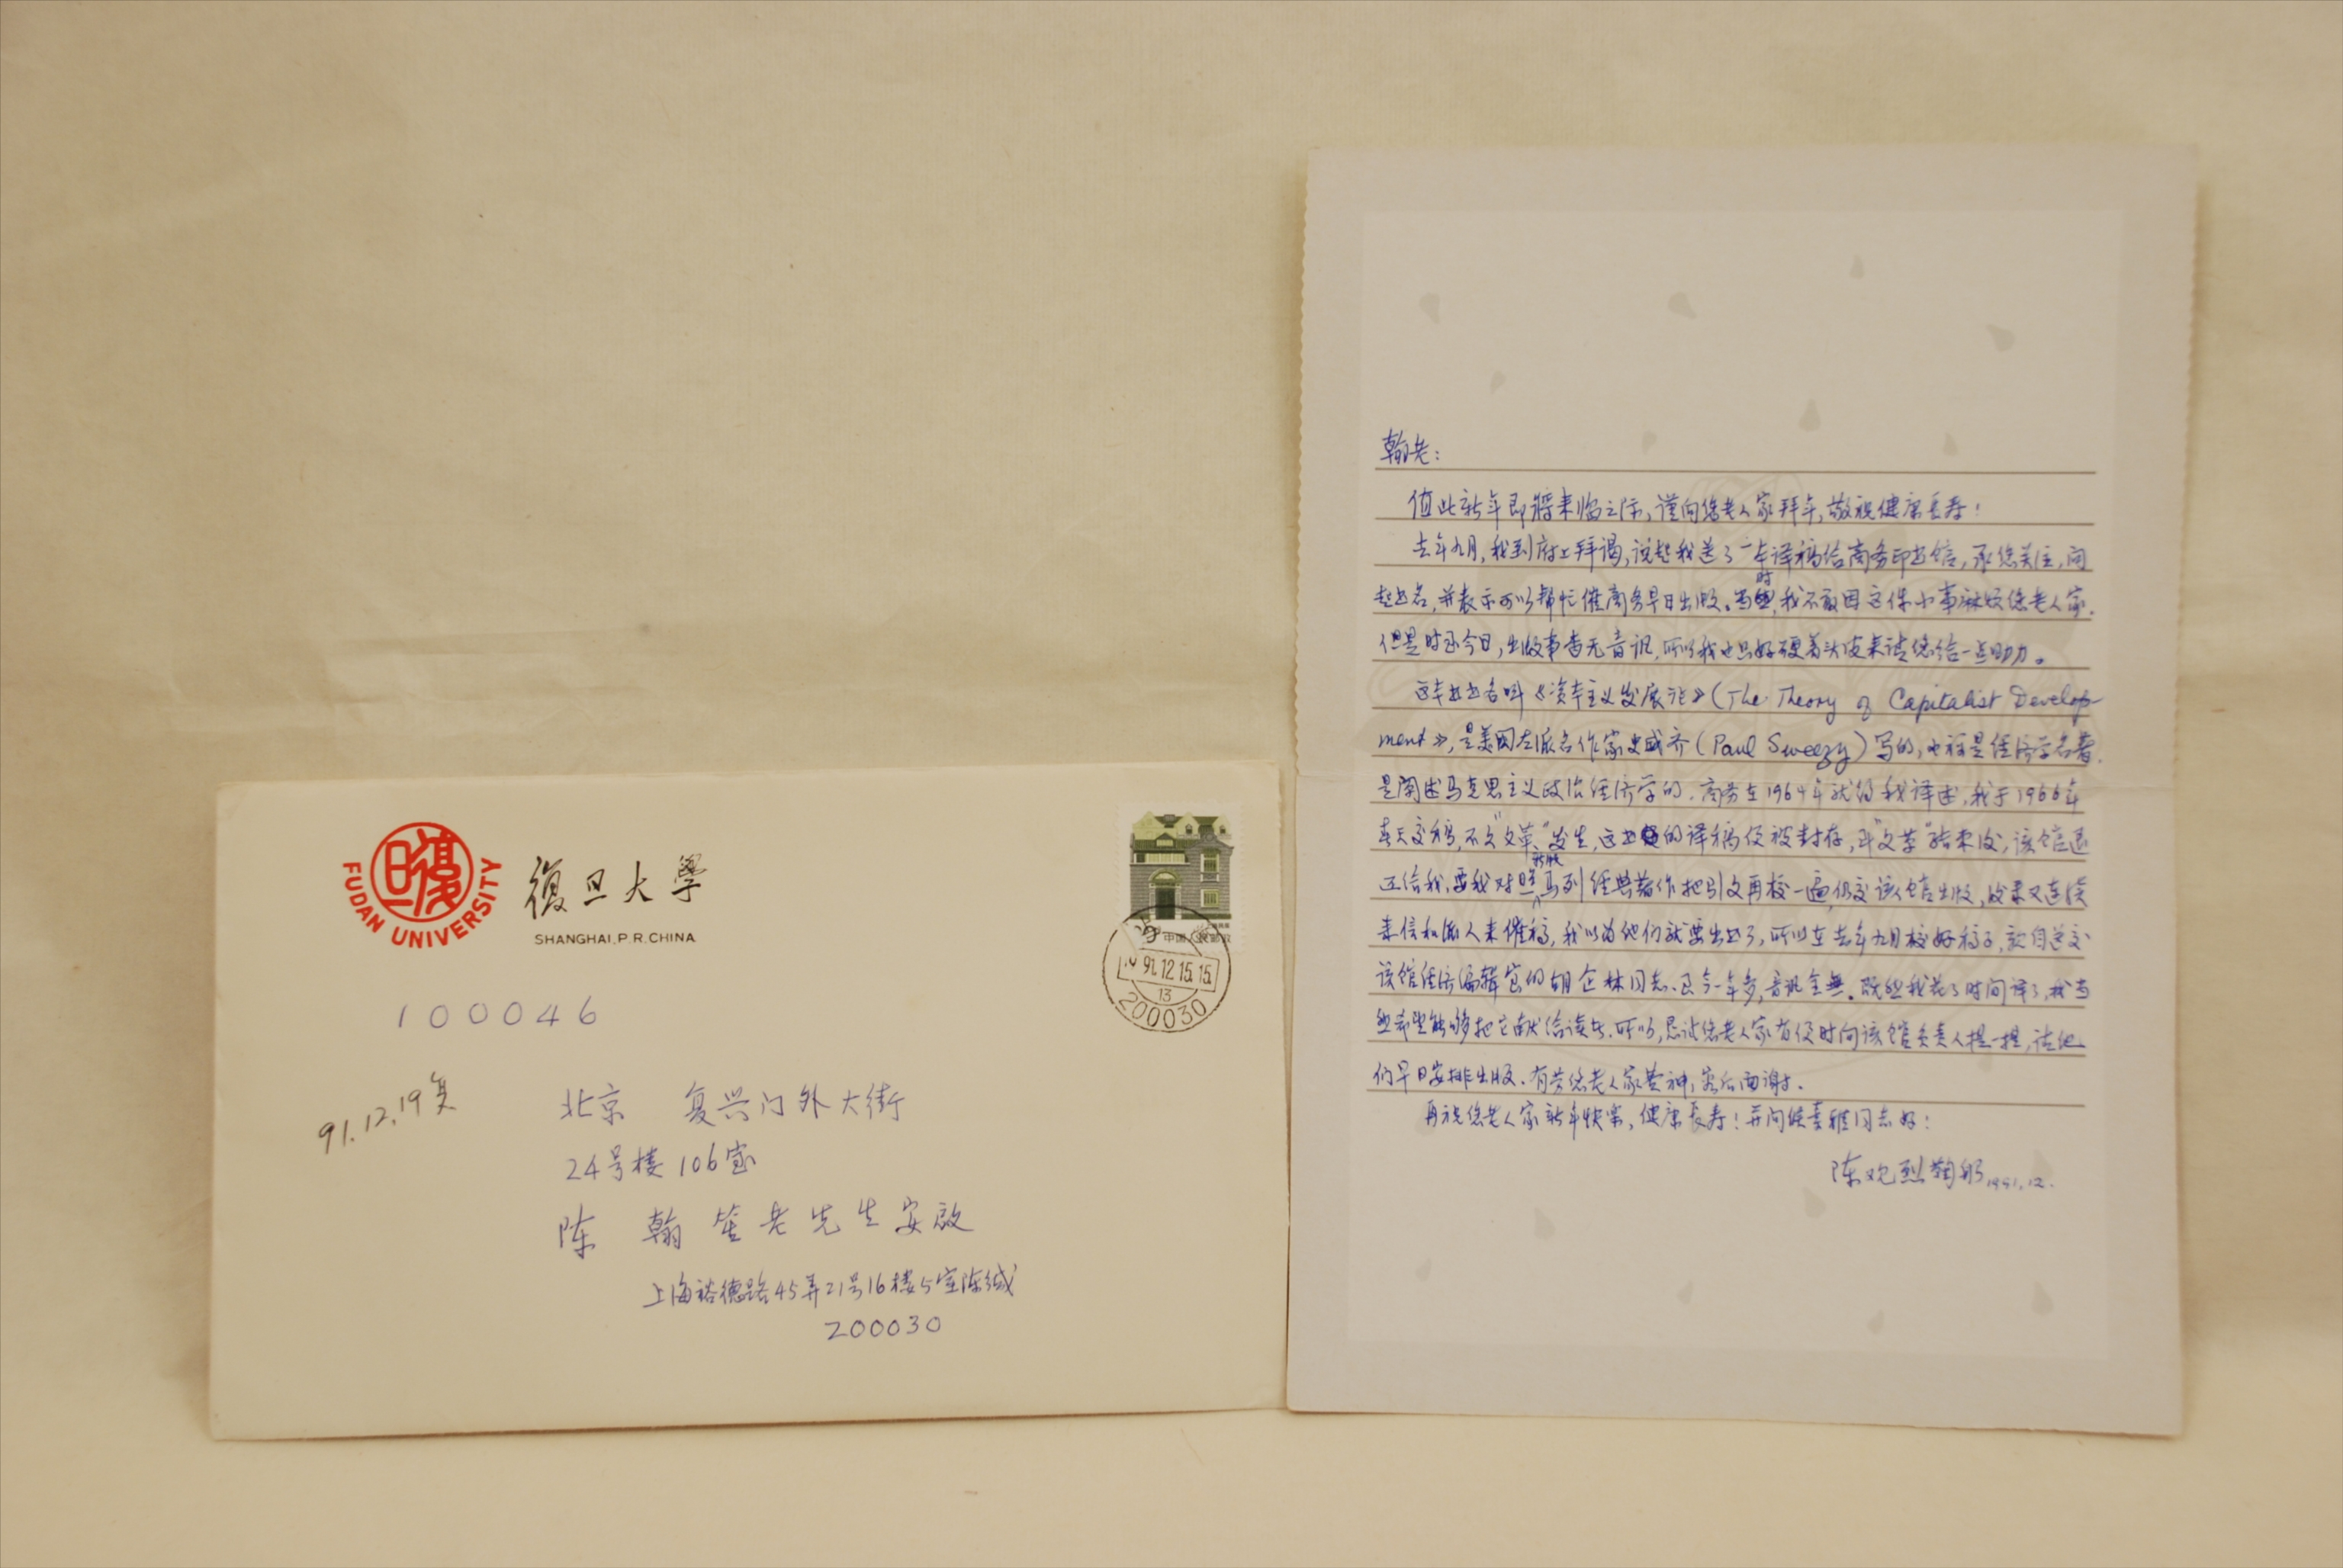 復旦
FUDAN UNIVERSITY
復旦大學
SHANGHAI, P.R. CHINA
中国人民邮政
91.12.15.15
13
200030
100046
91.12.19复
北京 复兴门外大街
24号楼106室
陈 翰笙老先生安啟
上海裕德路45弄21号16楼5室陈缄
200030
翰老：
值此新年即将来临之际，谨向您老人家拜年，敬祝健康长寿！
去年九月，我到府上拜谒，说起我送了一本译稿给商务印书馆，承您关注，问
起书名，并表示可以帮忙催商务早日出版。当时，我不敢因这件小事麻烦您老人家。
但是时至今日，出版事杳无音讯，所以我也只好硬着头皮来请您给一点助力。
这本书书名叫《资本主义发展论》(The Theory of Capitalist Develop-
ment》，是美国左派名作家史威齐(Paul Sweezy)写的，也算是经济学名著，
是阐述马克思主义政治经济学的。商务在1964年就约我译述，我于1966年
春天交稿，不久"文革"发生，这书的译稿便被封存，到"文革"结束后，该馆退
还给我，要我对照新版马列经典著作把引文再校一遍，仍交该馆出版，后来又连续
来信和派人来催稿，我以为他们就要出书了，所以在去年九月校好稿子，亲自送交
该馆经济编辑室的胡企林同志。迄今一年多，音讯全無。既然我花了时间译了，我当
然希望能够把它献给读者。所以，恳请您老人家有便时向该馆负责人提一提，请他
们早日安排出版。有劳您老人家费神，容后面谢。
再祝您老人家新年快乐，健康长寿！并问候 同志好！
陈 烈鞠躬 1991.12.